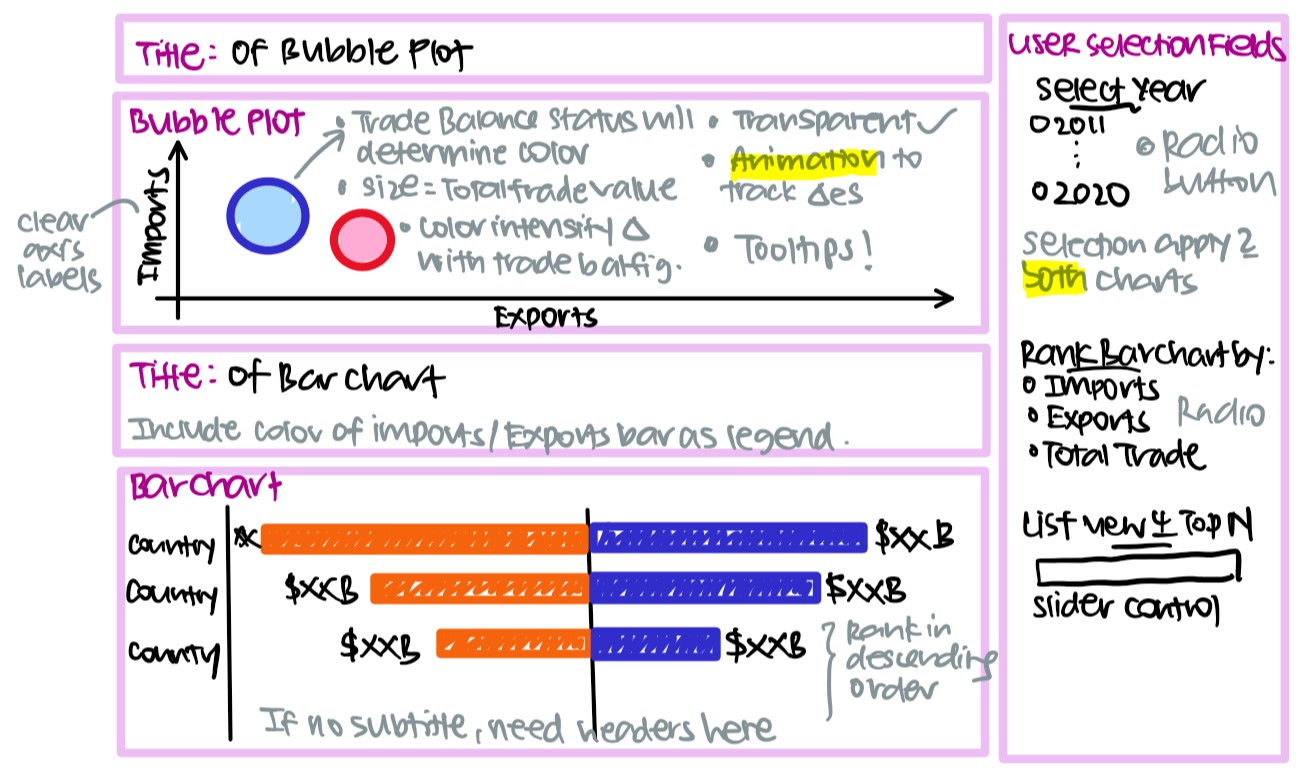 Title: Of Bubble Plot
Bubble Plot
• Trade Balance Status will
determine color
• size = Total trade value
• Color intensity Δ
with trade bal fig.
• Transparent ✓
• Animation to
track Δes
• Tooltips!
clear
axis
labels
Imports
Exports
Title: Of Bar chart
Include color of imports/Exports bar as legend.
Bar chart
Country $XXB
Country $XXB $XXB
Country $XXB $XXB
Rank in
descending
order
If no subtitle, need headers here
User Selection Fields
Select Year
O 2011
⋮
O 2020
Radio
button
Selection apply 2
both charts
Rank Bar chart by:
• Imports
• Exports
• Total Trade
Radio
List view Top N
slider control